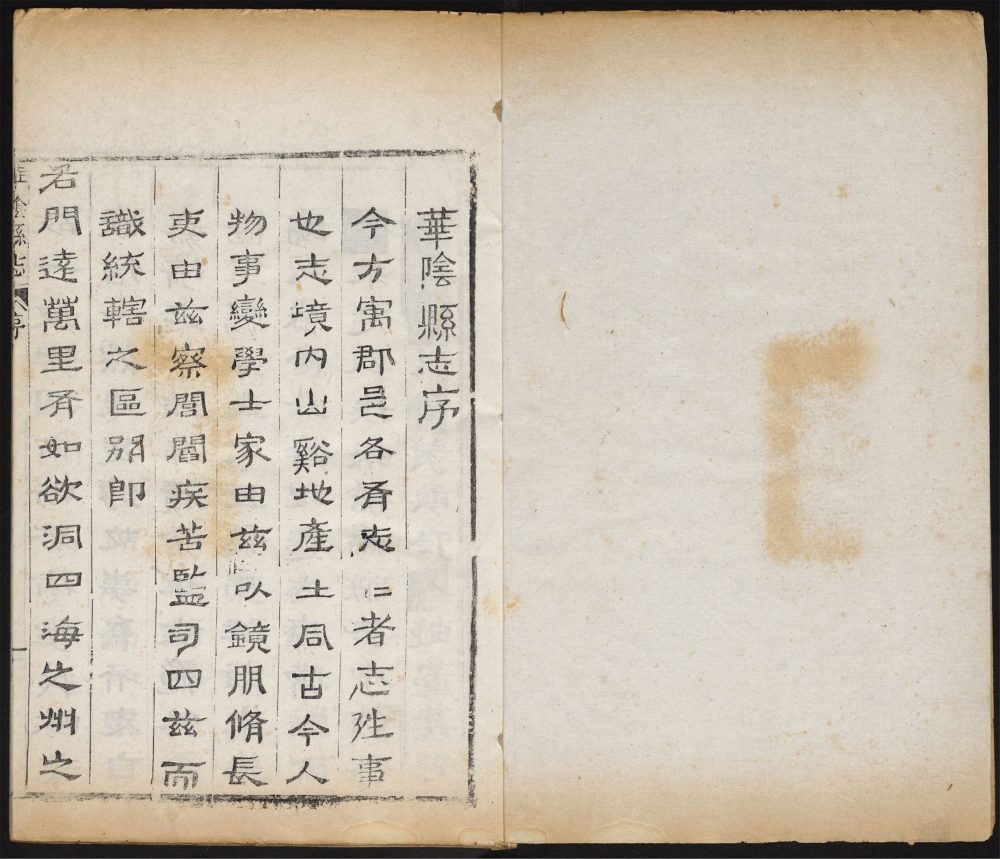 華陰縣志序
今方寓郡邑各有志二者志往事
也志境内山谿地產土風古今人
物事變學士家由兹以鏡前脩長
吏由兹察閭閻疾苦監司因兹而
識統轄之區別即
君門遠萬里有如欲洞四海九州之
華陰縣志 序 一